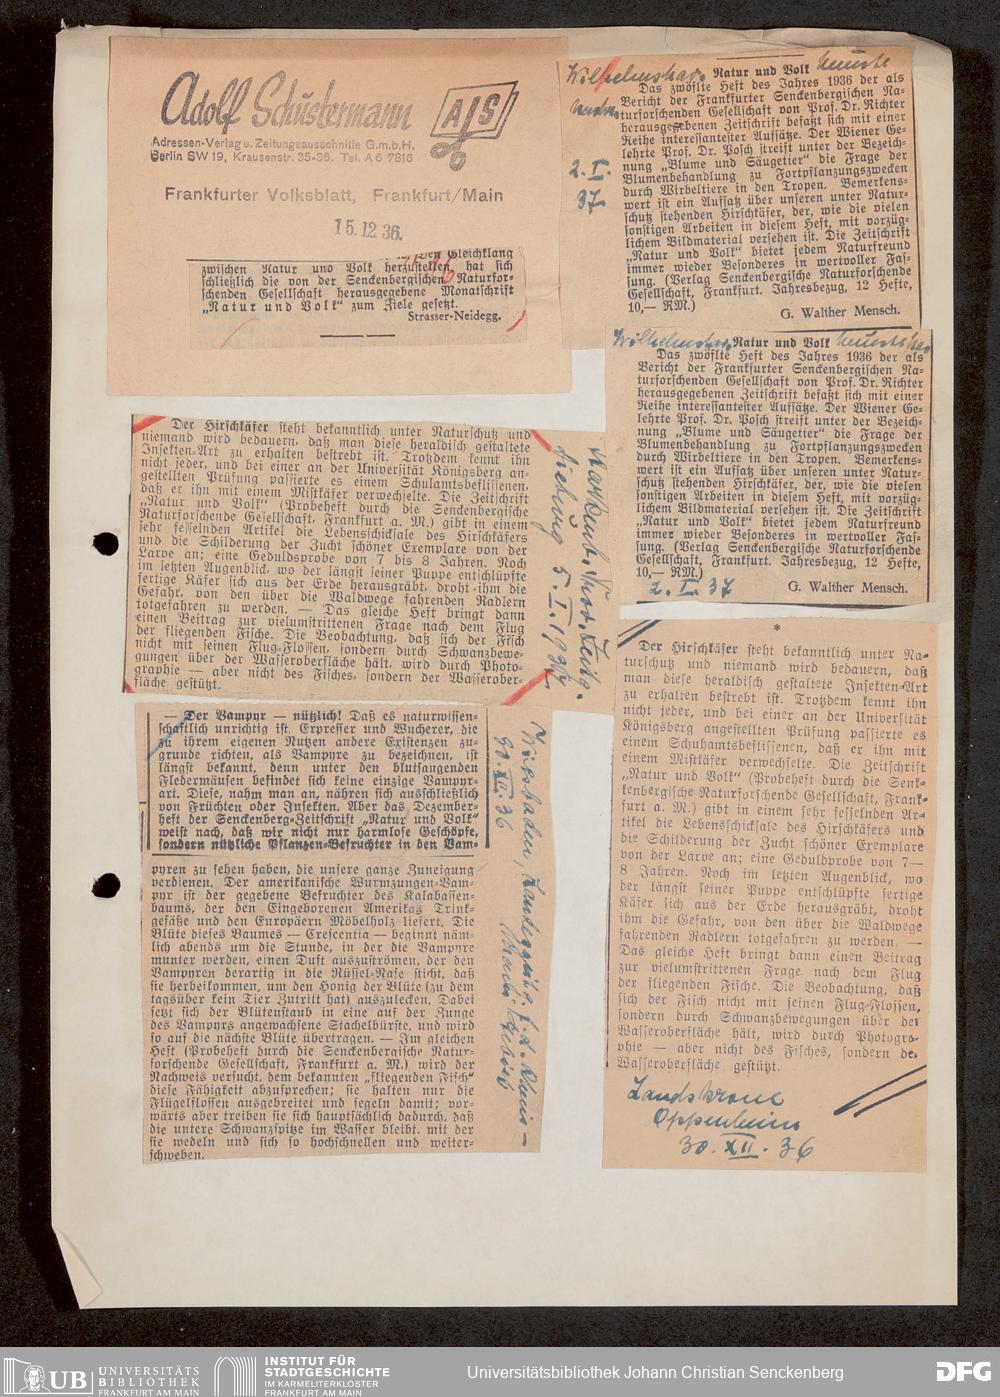 Adolf Schustermann
A S
Adressen-Verlag u. Zeitungsausschnitte G.m.b.H.
Berlin SW 19, Krausenstr. 35-36. Tel. A 6 7816
Frankfurter Volksblatt, Frankfurt/Main
15.12 36.
Gleichklang
zwischen Natur und Volk herzustellen, hat sich
schließlich die von der Senckenbergischen Naturfor-
schenden Gesellschaft herausgegebene Monatschrift
„Natur und Volk“ zum Ziele gesetzt.
Strasser-Neidegg.
Der Hirschkäfer steht bekanntlich unter Naturschutz und
niemand wird bedauern, daß man diese heraldisch gestaltete
Insekten-Art zu erhalten bestrebt ist. Trotzdem kennt ihn
nicht jeder, und bei einer an der Universität Königsberg an-
gestellten Prüfung passierte es einem Schulamtsbeflissenen,
daß er ihn mit einem Mistkäfer verwechselte. Die Zeitschrift
„Natur und Volk“ (Probeheft durch die Senckenbergische
Naturforschende Gesellschaft, Frankfurt a. M.) gibt in einem
sehr fesselnden Artikel die Lebensschicksale des Hirschkäfers
und die Schilderung der Zucht schöner Exemplare von der
Larve an; eine Geduldsprobe von 7 bis 8 Jahren. Noch
im letzten Augenblick, wo der längst seiner Puppe entschlüpfte
fertige Käfer sich aus der Erde herausgräbt, droht ihm die
Gefahr, von den über die Waldwege fahrenden Radlern
totgefahren zu werden. — Das gleiche Heft bringt dann
einen Beitrag zur vielumstrittenen Frage nach dem Flug
der fliegenden Fische. Die Beobachtung, daß sich der Fisch
nicht mit seinen Flug-Flossen, sondern durch Schwanzbewe-
gungen über der Wasseroberfläche hält, wird durch Photo-
graphie — aber nicht des Fisches, sondern der Wasserober-
fläche gestützt.
5. I. 1937
— Der Vampyr — nützlich! Daß es naturwissen-
schaftlich unrichtig ist Erpresser und Wucherer, die
zu ihrem eigenen Nutzen andere Existenzen zu-
grunde richten, als Vampyre zu bezeichnen, ist
längst bekannt, denn unter den blutsaugenden
Fledermäusen befindet sich keine einzige Vampyr-
art. Diese, nahm man an, nähren sich ausschließlich
von Früchten oder Insekten. Aber das Dezember-
heft der Senckenberg-Zeitschrift „Natur und Volk“
weist nach, daß wir nicht nur harmlose Geschöpfe,
sondern nützliche Pflanzen-Befruchter in den Vam-
pyren zu sehen haben, die unsere ganze Zuneigung
verdienen. Der amerikanische Wurmzungen-Vam-
pyr ist der gegebene Befruchter des Kalabassen-
baums, der den Eingeborenen Amerikas Trink-
gefäße und den Europäern Möbelholz liefert. Die
Blüte dieses Baumes — Crescentia — beginnt näm-
lich abends um die Stunde, in der die Vampyre
munter werden, einen Duft auszuströmen, der den
Vampyren derartig in die Rüssel-Nase sticht, daß
sie herbeikommen, um den Honig der Blüte (zu dem
tagsüber kein Tier Zutritt hat) auszulecken. Dabei
setzt sich der Blütenstaub in eine auf der Zunge
des Vampyrs angewachsene Stachelbürste, und wird
so auf die nächste Blüte übertragen. — Im gleichen
Heft (Probeheft durch die Senckenbergische Natur-
forschende Gesellschaft, Frankfurt a. M.) wird der
Nachweis versucht, dem bekannten „fliegenden Fisch“
diese Fähigkeit abzusprechen; sie halten nur die
Flügelflossen ausgebreitet und segeln damit; vor-
wärts aber treiben sie sich hauptsächlich dadurch, daß
die untere Schwanzspitze im Wasser bleibt, mit der
sie wedeln und sich so hochschnellen und weiter-
schweben.
Wiesbaden,
XII. 36
Natur und Volk
Das zwölfte Heft des Jahres 1936 der als
Bericht der Frankfurter Senckenbergischen Na-
turforschenden Gesellschaft von Prof. Dr. Richter
herausgegebenen Zeitschrift befaßt sich mit einer
Reihe interessantester Aufsätze. Der Wiener Ge-
lehrte Prof. Dr. Posch streift unter der Bezeich-
nung „Blume und Säugetier“ die Frage der
Blumenbehandlung zu Fortpflanzungszwecken
durch Wirbeltiere in den Tropen. Bemerkens-
wert ist ein Aufsatz über unseren unter Natur-
schutz stehenden Hirschkäfer, der, wie die vielen
sonstigen Arbeiten in diesem Heft, mit vorzüg-
lichem Bildmaterial versehen ist. Die Zeitschrift
„Natur und Volk“ bietet jedem Naturfreund
immer wieder Besonderes in wertvoller Fas-
sung. (Verlag Senckenbergische Naturforschende
Gesellschaft, Frankfurt. Jahresbezug, 12 Hefte,
10,— RM.)
G. Walther Mensch.
2. I.
37
Natur und Volk
Das zwölfte Heft des Jahres 1936 der als
Bericht der Frankfurter Senckenbergischen Na-
turforschenden Gesellschaft von Prof. Dr. Richter
herausgegebenen Zeitschrift befaßt sich mit einer
Reihe interessantester Aufsätze. Der Wiener Ge-
lehrte Prof. Dr. Posch streift unter der Bezeich-
nung „Blume und Säugetier“ die Frage der
Blumenbehandlung zu Fortpflanzungszwecken
durch Wirbeltiere in den Tropen. Bemerkens-
wert ist ein Aufsatz über unseren unter Natur-
schutz stehenden Hirschkäfer, der, wie die vielen
sonstigen Arbeiten in diesem Heft, mit vorzüg-
lichem Bildmaterial versehen ist. Die Zeitschrift
„Natur und Volk“ bietet jedem Naturfreund
immer wieder Besonderes in wertvoller Fas-
sung. (Verlag Senckenbergische Naturforschende
Gesellschaft, Frankfurt. Jahresbezug, 12 Hefte,
10,— RM.)
G. Walther Mensch.
2. I. 37
*
Der Hirschkäfer steht bekanntlich unter Na-
turschutz und niemand wird bedauern, daß
man diese heraldisch gestaltete Insekten-Art
zu erhalten bestrebt ist. Trotzdem kennt ihn
nicht jeder, und bei einer an der Universität
Königsberg angestellten Prüfung passierte es
einem Schuhamtsbeflissenen, daß er ihn mit
einem Mistkäfer verwechselte. Die Zeitschrift
„Natur und Volk“ (Probeheft durch die Senk-
kenbergische Naturforschende Gesellschaft, Frank-
furt a. M.) gibt in einem sehr fesselnden Ar-
tikel die Lebensschicksale des Hirschkäfers und
die Schilderung der Zucht schöner Exemplare
von der Larve an; eine Geduldprobe von 7—
8 Jahren. Noch im letzten Augenblick, wo
der längst seiner Puppe entschlüpfte fertige
Käfer sich aus der Erde herausgräbt, droht
ihm die Gefahr, von den über die Waldwege
fahrenden Radlern totgefahren zu werden. —
Das gleiche Heft bringt dann einen Beitrag
zur vielumstrittenen Frage nach dem Flug
der fliegenden Fische. Die Beobachtung, daß
sich der Fisch nicht mit seinen Flug-Flossen,
sondern durch Schwanzbewegungen über der
Wasseroberfläche hält, wird durch Photogra-
phie — aber nicht des Fisches, sondern der
Wasseroberfläche gestützt.
Landskrone
Oppenheim
30. XII. 36
UB UNIVERSITÄTS
BIBLIOTHEK
FRANKFURT AM MAIN
INSTITUT FÜR
STADTGESCHICHTE
IM KARMELITERKLOSTER
FRANKFURT AM MAIN
Universitätsbibliothek Johann Christian Senckenberg
DFG